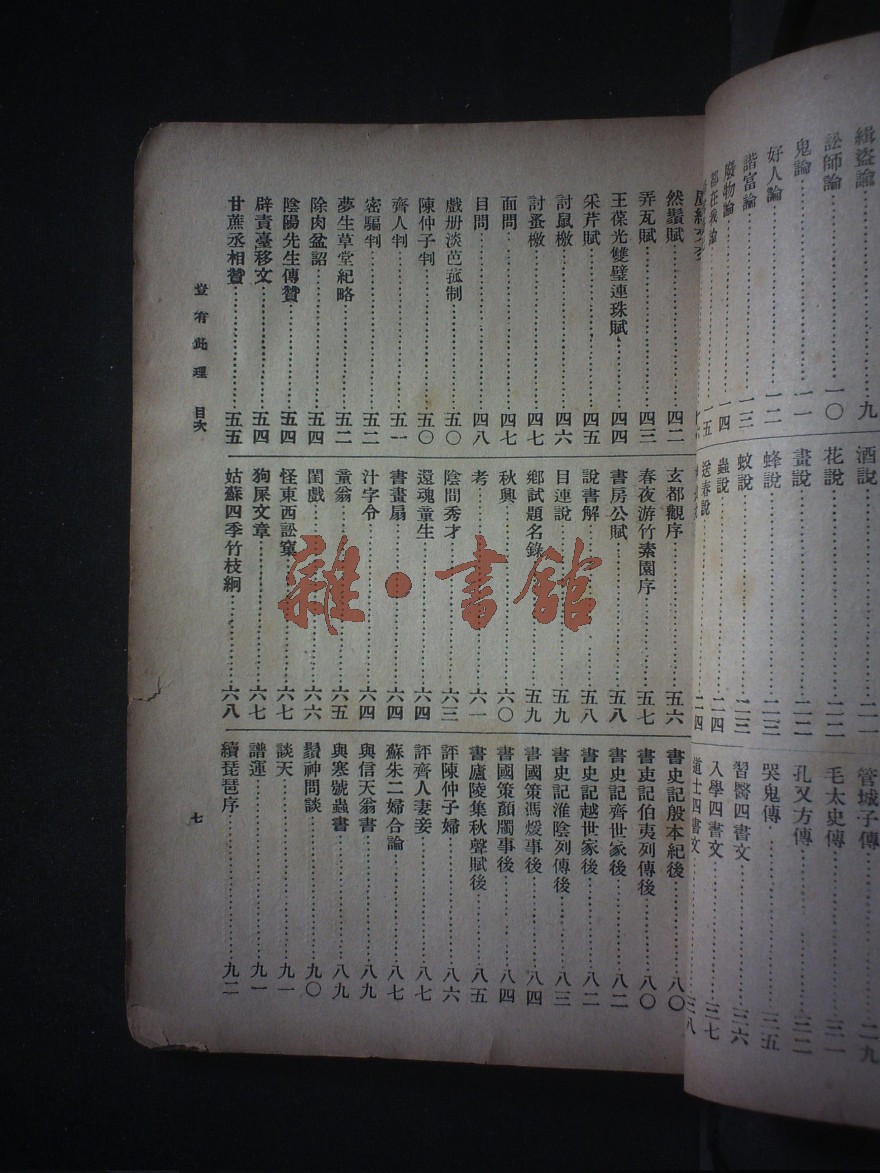 緝盜論⋯⋯九
訟師論⋯⋯一〇
鬼論⋯⋯一一
好人論⋯⋯一二
譜富論⋯⋯一三
廢物論⋯⋯一四
都在我論⋯⋯一五
酒說⋯⋯二一
花說⋯⋯二二
畫說⋯⋯二二
蜂說⋯⋯二三
蚊說⋯⋯二三
蟲說⋯⋯二四
送春說⋯⋯二四
管城子傳⋯⋯二九
毛太史傳⋯⋯三一
孔又方傳⋯⋯三二
哭鬼傳⋯⋯三五
習醫四書文⋯⋯三六
入學四書文⋯⋯三七
道士四書文⋯⋯三八
然鬚賦⋯⋯四二
弄瓦賦⋯⋯四三
王葆光雙璧連珠賦⋯⋯四四
采芹賦⋯⋯四五
討鼠檄⋯⋯四六
討蚤檄⋯⋯四七
面問⋯⋯四七
目問⋯⋯四八
戲册淡芭菰制⋯⋯五〇
陳仲子判⋯⋯五〇
齊人判⋯⋯五一
密騙判⋯⋯五二
夢生草堂紀略⋯⋯五二
除肉盆詔⋯⋯五四
陰陽先生傳贊⋯⋯五四
辟責臺移文⋯⋯五四
甘蔗丞相贊⋯⋯五五
玄都觀序⋯⋯五六
春夜游竹素園序⋯⋯五七
書房公賦⋯⋯五八
說書解⋯⋯五八
目連說⋯⋯五九
鄉試題名錄⋯⋯五九
秋興⋯⋯六〇
考⋯⋯六一
陰間秀才⋯⋯六三
還魂童生⋯⋯六四
書畫扇⋯⋯六四
汁字令⋯⋯六四
童翁⋯⋯六五
閨戲⋯⋯六六
怪東西訟窠⋯⋯六七
狗屎文章⋯⋯六七
姑蘇四季竹枝綱⋯⋯六八
書史記殷本紀後⋯⋯八〇
書吏記伯夷列傳後⋯⋯八〇
書史記齊世家後⋯⋯八二
書史記越世家後⋯⋯八二
書史記淮陰列傳後⋯⋯八三
書國策馮煖事後⋯⋯八四
書國策顏斶事後⋯⋯八四
書廬陵集秋聲賦後⋯⋯八五
評陳仲子婦⋯⋯八六
評齊人妻妾⋯⋯八七
蘇朱二婦合論⋯⋯八七
與信天翁書⋯⋯八九
與寒號蟲書⋯⋯八九
鬚神問談⋯⋯九〇
談天⋯⋯九一
譜運⋯⋯九一
續琵琶序⋯⋯九二
豈有此理 目次
七
雜·書館